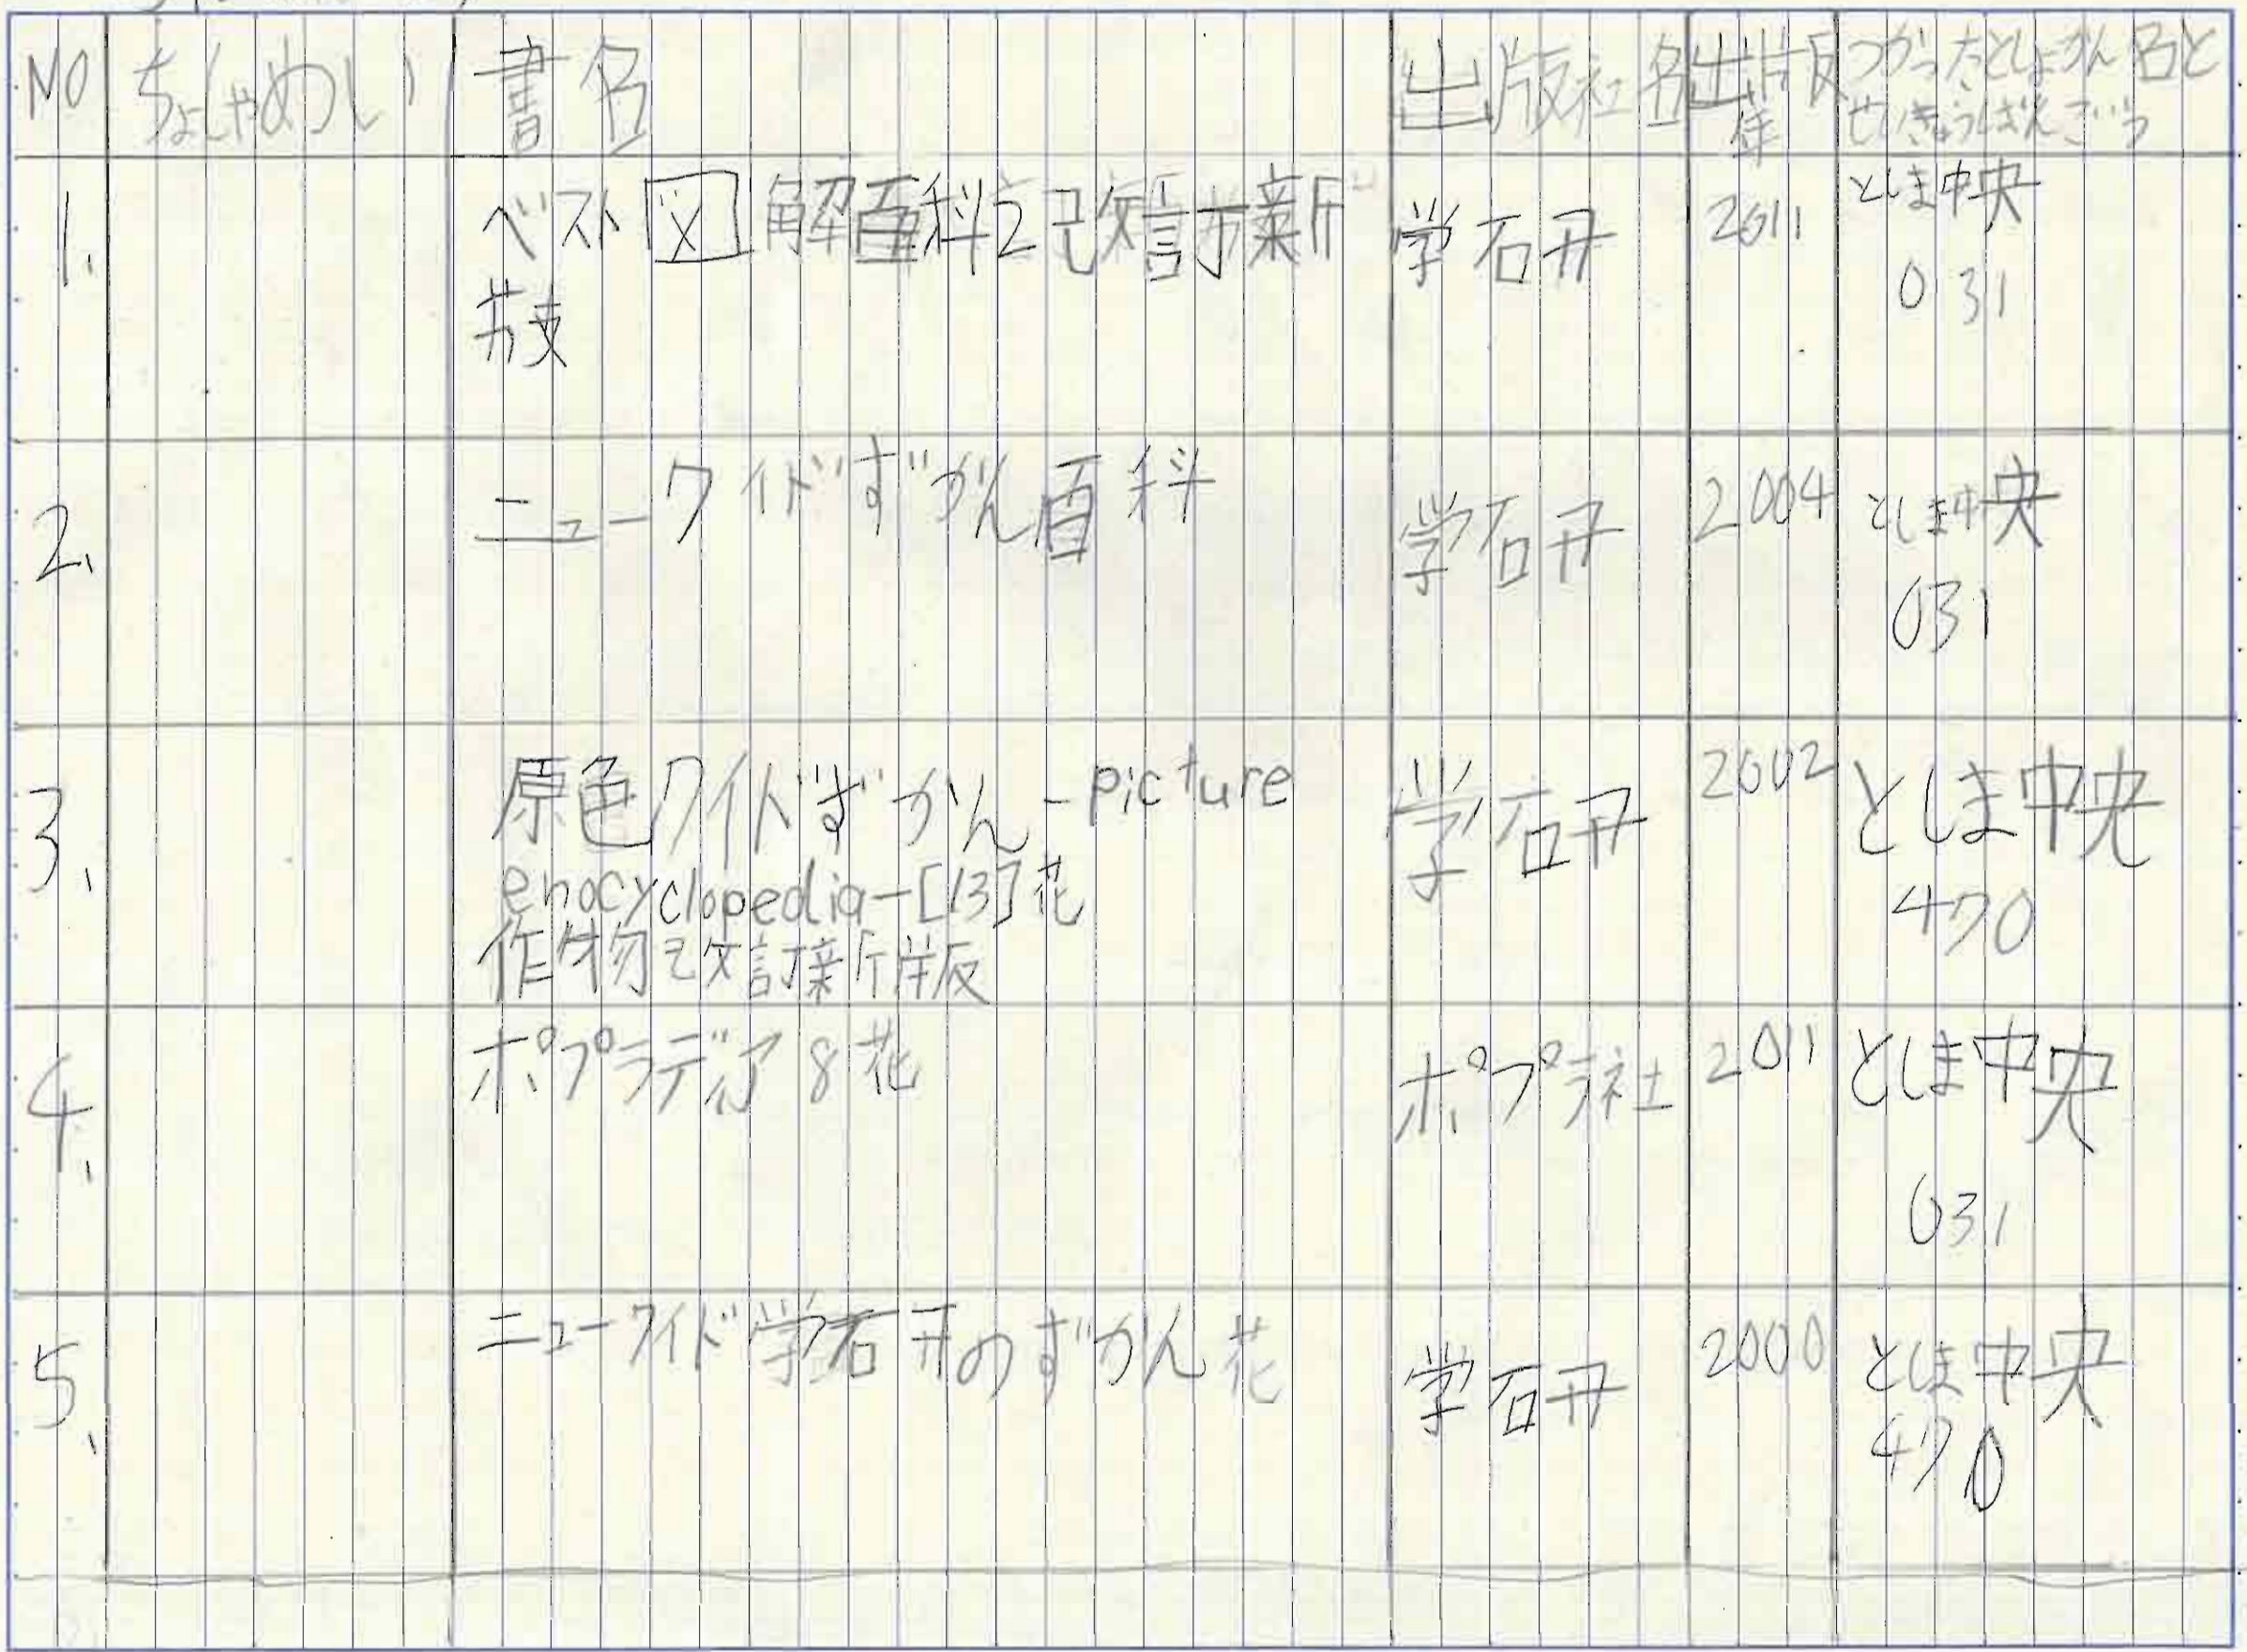 NO ちょしゃめい 書名 出版社名 出版年 つかったとしょかん名と
せいきゅうばんごう
1. ベスト図解百科2改訂新 学研 2011 としま中央
版 031
2. ニューワイドずかん百科 学研 2004 としま中央
031
3. 原色ワイドずかん-picture 学研 2002 としま中央
enocyclopedia-[13]花 470
作物改訂新版
4. ポプラディア 8 花 ポプラ社 2011 としま中央
031
5. ニューワイド学研のずかん 花 学研 2000 としま中央
470